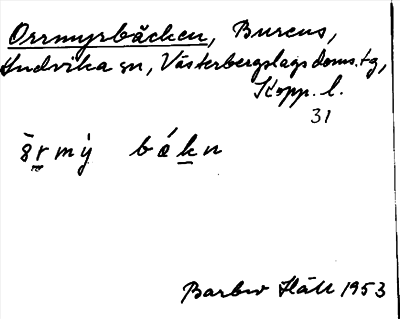 Orrmyrbäcken, Burens,
Ludvika sn, Västerbergslags doms.tg,
Kopp. l.
31
Barbro Häll 1953